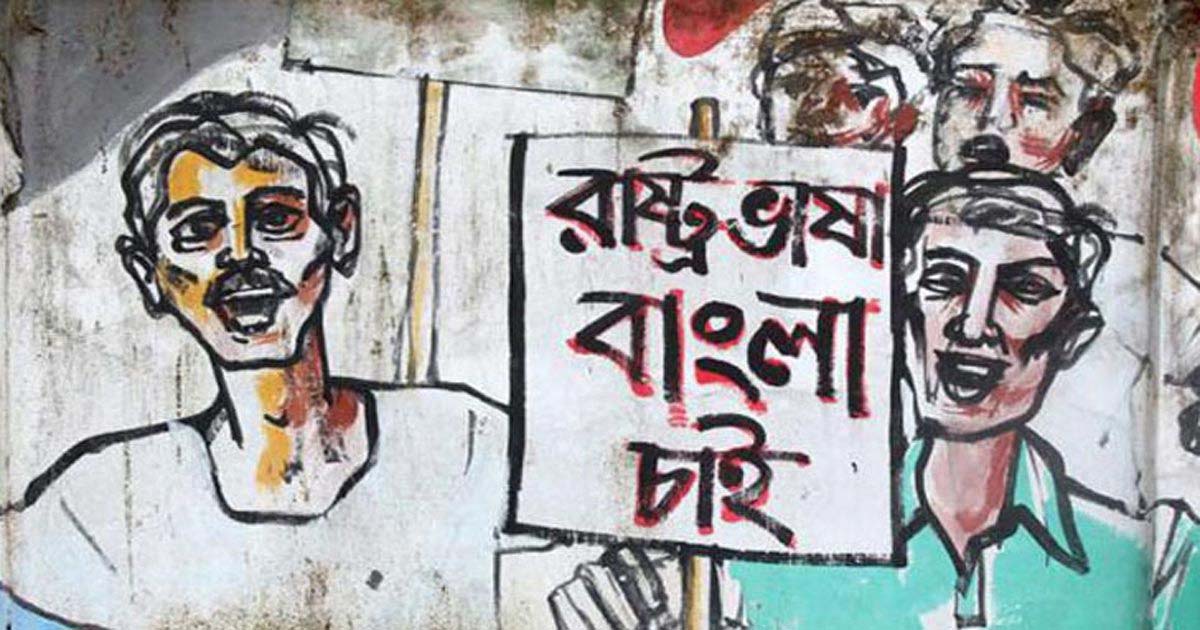 রাষ্ট্রভাষা
বাংলা
চাই